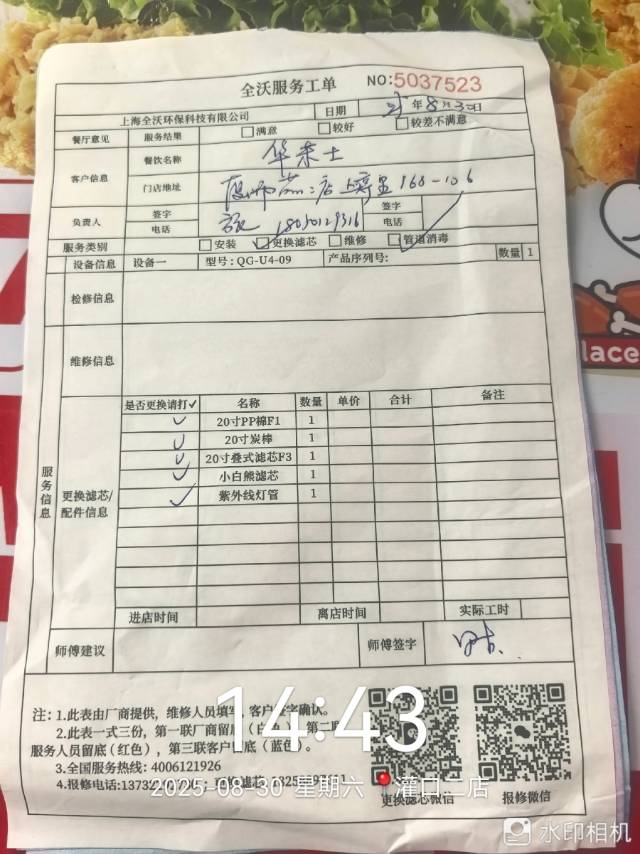 全沃服务工单 NO:5037523
上海全沃环保科技有限公司 日期 年8月30日
餐厅意见 服务结果 满意 较好 较差不满意
客户信息 餐饮名称 华莱士
门店地址 二店 168-106
负责人 签字 签字
电话 电话
服务类别 安装 更换滤芯 维修 管道消毒
设备信息 设备一 型号:QG-U4-09 产品序列号: 数量 1
检修信息
维修信息
服务信息
更换滤芯/配件信息
是否更换请打✓ 名称 数量 单价 合计 备注
✓ 20寸PP棉F1 1
✓ 20寸炭棒 1
✓ 20寸叠式滤芯F3 1
✓ 小白熊滤芯 1
✓ 紫外线灯管 1
进店时间 离店时间 实际工时
师傅建议 师傅签字
注:1.此表由厂商提供,维修人员填写,客户签字确认。
2.此表一式三份,第一联厂商留底(白色),第二联
服务人员留底(红色),第三联客户留底(蓝色)。
3.全国服务热线:4006121926
4.报修电话:1373
更换滤芯微信 报修微信
14:43
2025-08-30 星期六 灌口二店
水印相机
lace